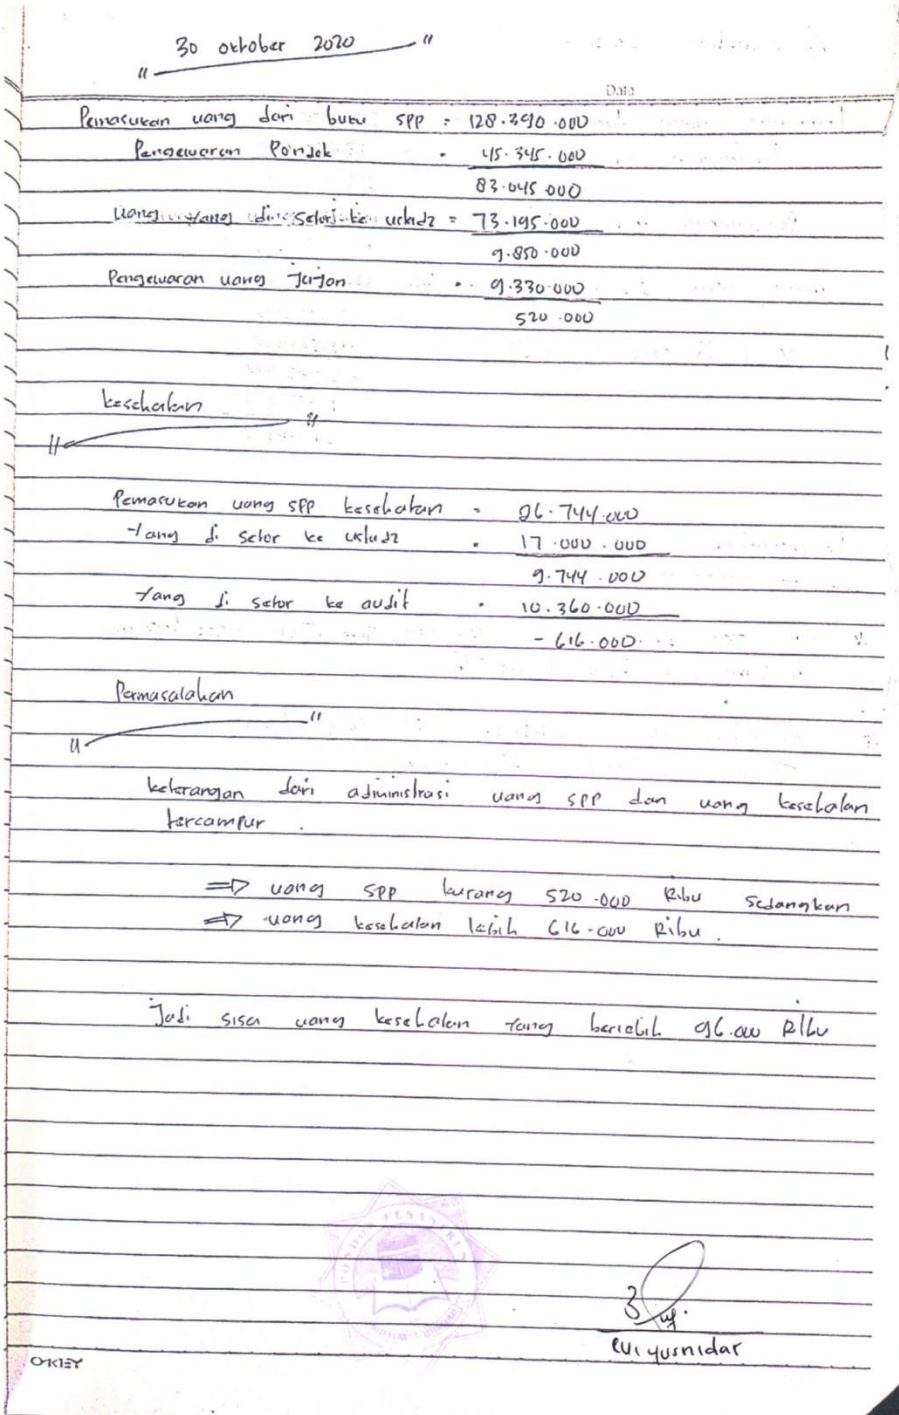 30 oktober 2020
Date
Pemasukan uang dari buku SPP = 128.390.000
Pengeluaran Pondok = 45.345.000
83.045.000
uang yang di setori ke ustadz = 73.195.000
9.850.000
Pengeluaran uang Jajan = 9.330.000
520.000
kesehatan
Pemasukan uang SPP kesehatan = 26.744.000
Yang di setor ke ustadz = 17.000.000
9.744.000
Yang di setor ke audit = 10.360.000
- 616.000
Permasalahan
keterangan dari administrasi uang SPP dan uang kesehatan
tercampur.
⇒ uang SPP kurang 520.000 Ribu sedangkan
⇒ uang kesehatan lebih 616.000 Ribu.
Jadi sisa uang kesehatan yang berlebih 96.000 Ribu
PONDOK PESANTREN
Evi yusnidar
OKEY